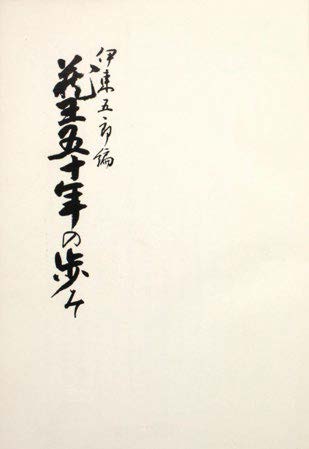 伊東五郎編
蔵王五十年の歩み